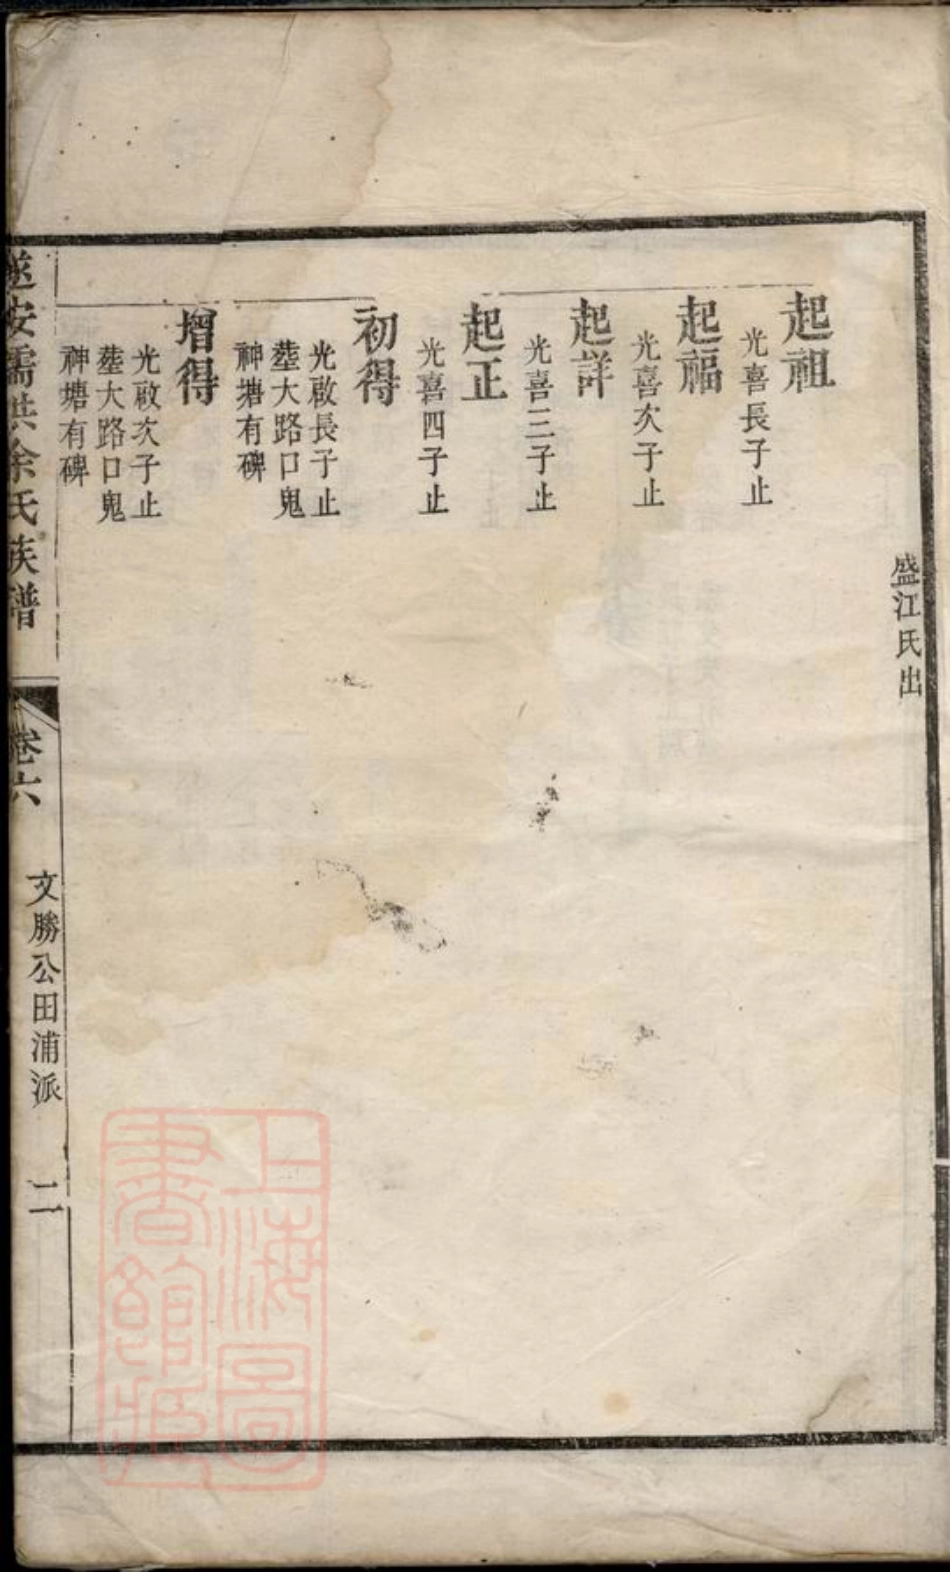 盛江氏出
起祖
光喜長子止
起福
光喜次子止
起詳
光喜三子止
起正
光喜四子止
初得
光啟長子止
塟大路口鬼
神塘有碑
增得
光啟次子止
塟大路口鬼
神塘有碑
遂安儒洪余氏族譜
卷六
文勝公田浦派
二
上海圖
書館藏